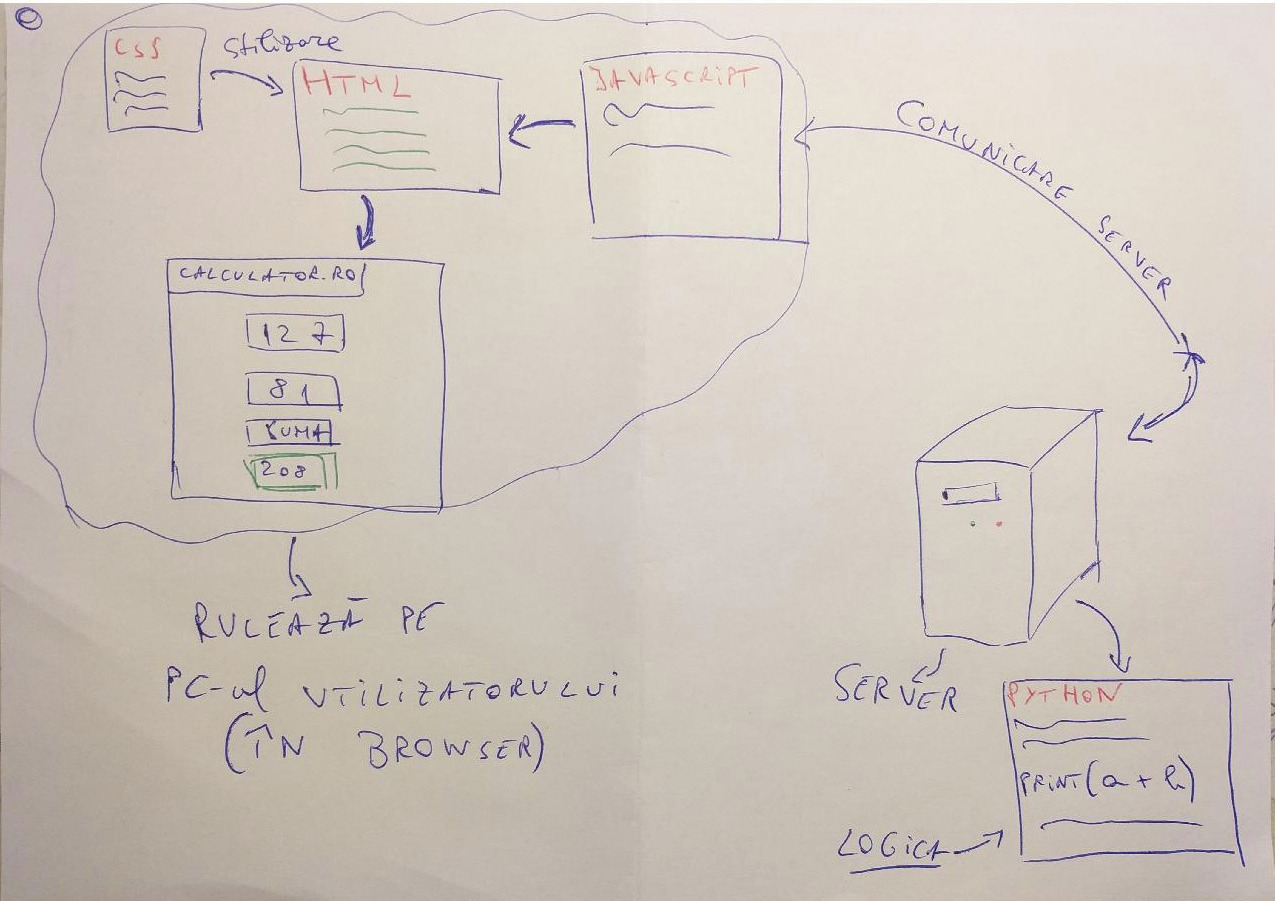 CSS
stilizare
HTML
JAVASCRIPT
COMUNICARE SERVER
CALCULATOR.RO
127
81
SUMA
208
RULEAZĂ PE
PC-ul UTILIZATORULUI
(ÎN BROWSER)
SERVER
PYTHON
PRINT(a + b)
LOGICA